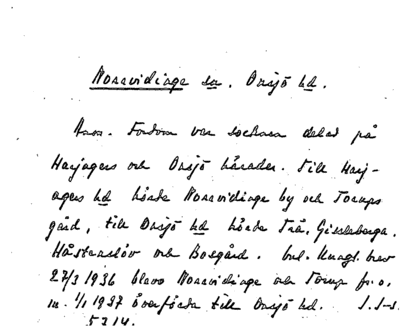 Norrvidinge sn. Onsjö hd.
Anm. Fordom var socknen delad på
Harjagers och Onsjö härader. Till Harj-
agers hd hörde Norrvidinge by och Torups
gård, till Onsjö hd hörde Trå, Gissleberga,
Håstenslöv och Bosgård. Enl. Kungl. brev
27/3 1936 blevo Norrvidinge och Torup fr. o.
m. 1/1 1937 överförda till Onsjö hd. J.J-s.
5314.